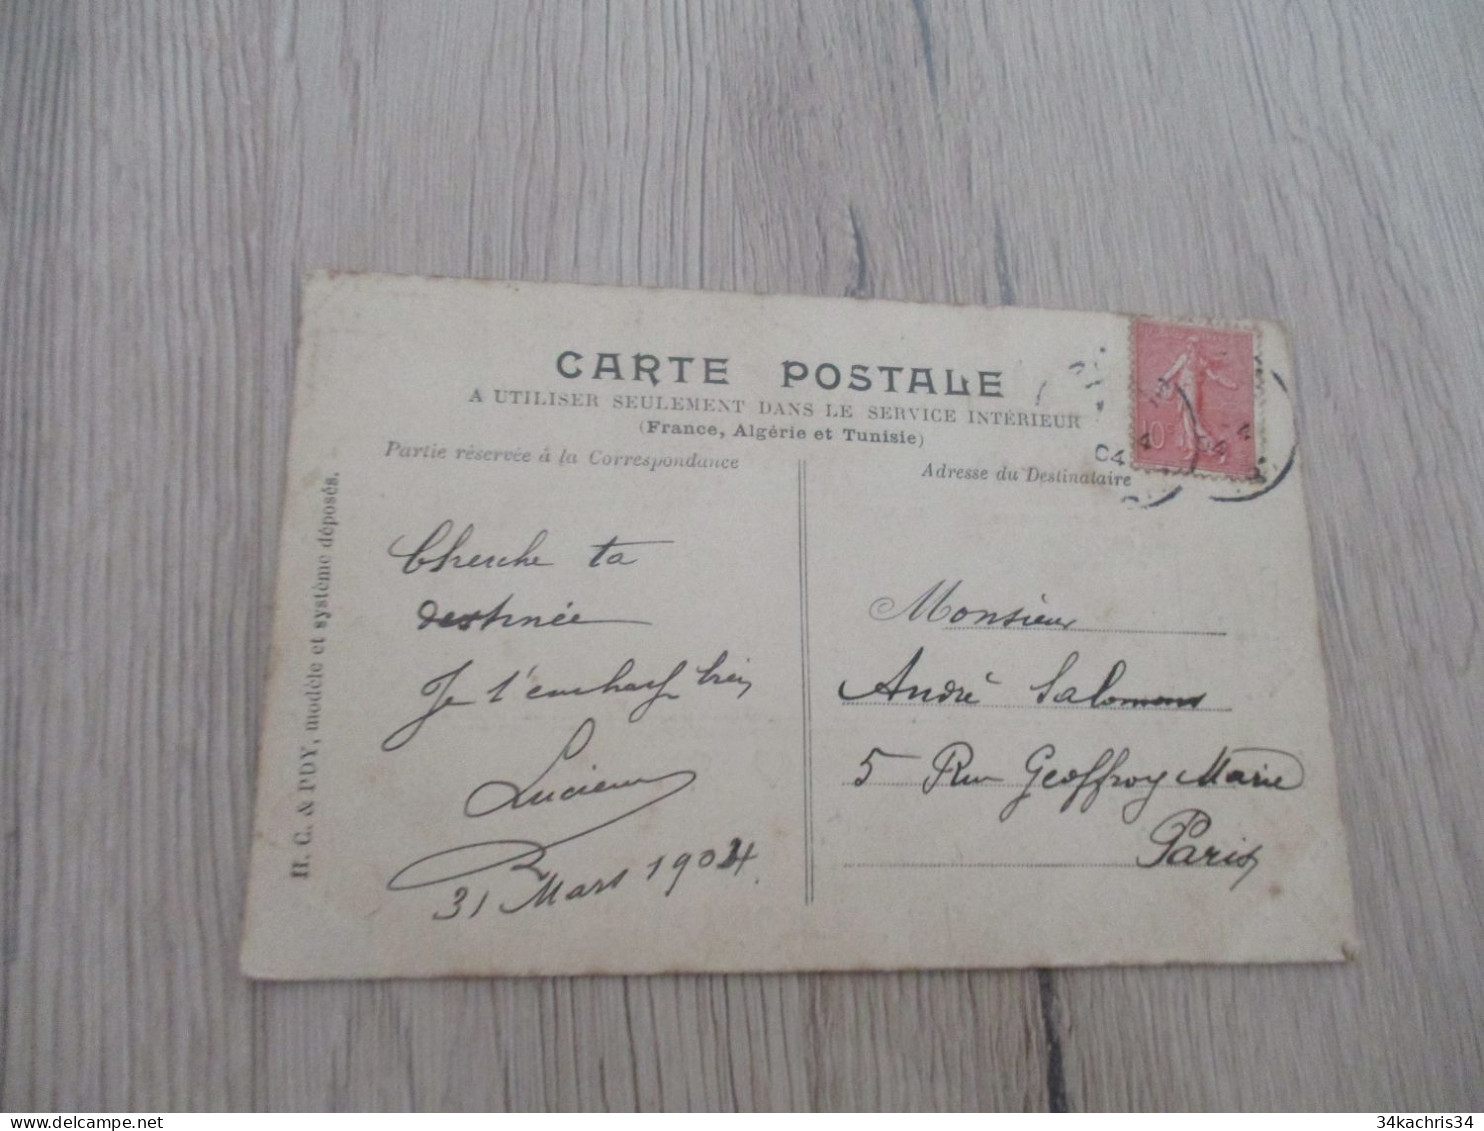 CARTE POSTALE
A UTILISER SEULEMENT DANS LE SERVICE INTÉRIEUR
(France, Algérie et Tunisie)
Partie réservée à la Correspondance
Adresse du Destinataire
H. C. & PDY, modèle et système déposés.
Cherche ta
destinée
Je t'embrasse bien
Lucien
31 Mars 1904
Monsieur
André Salomons
5 Rue Geoffroy Marie
Paris
10
04
delcampe.net
34kachris34